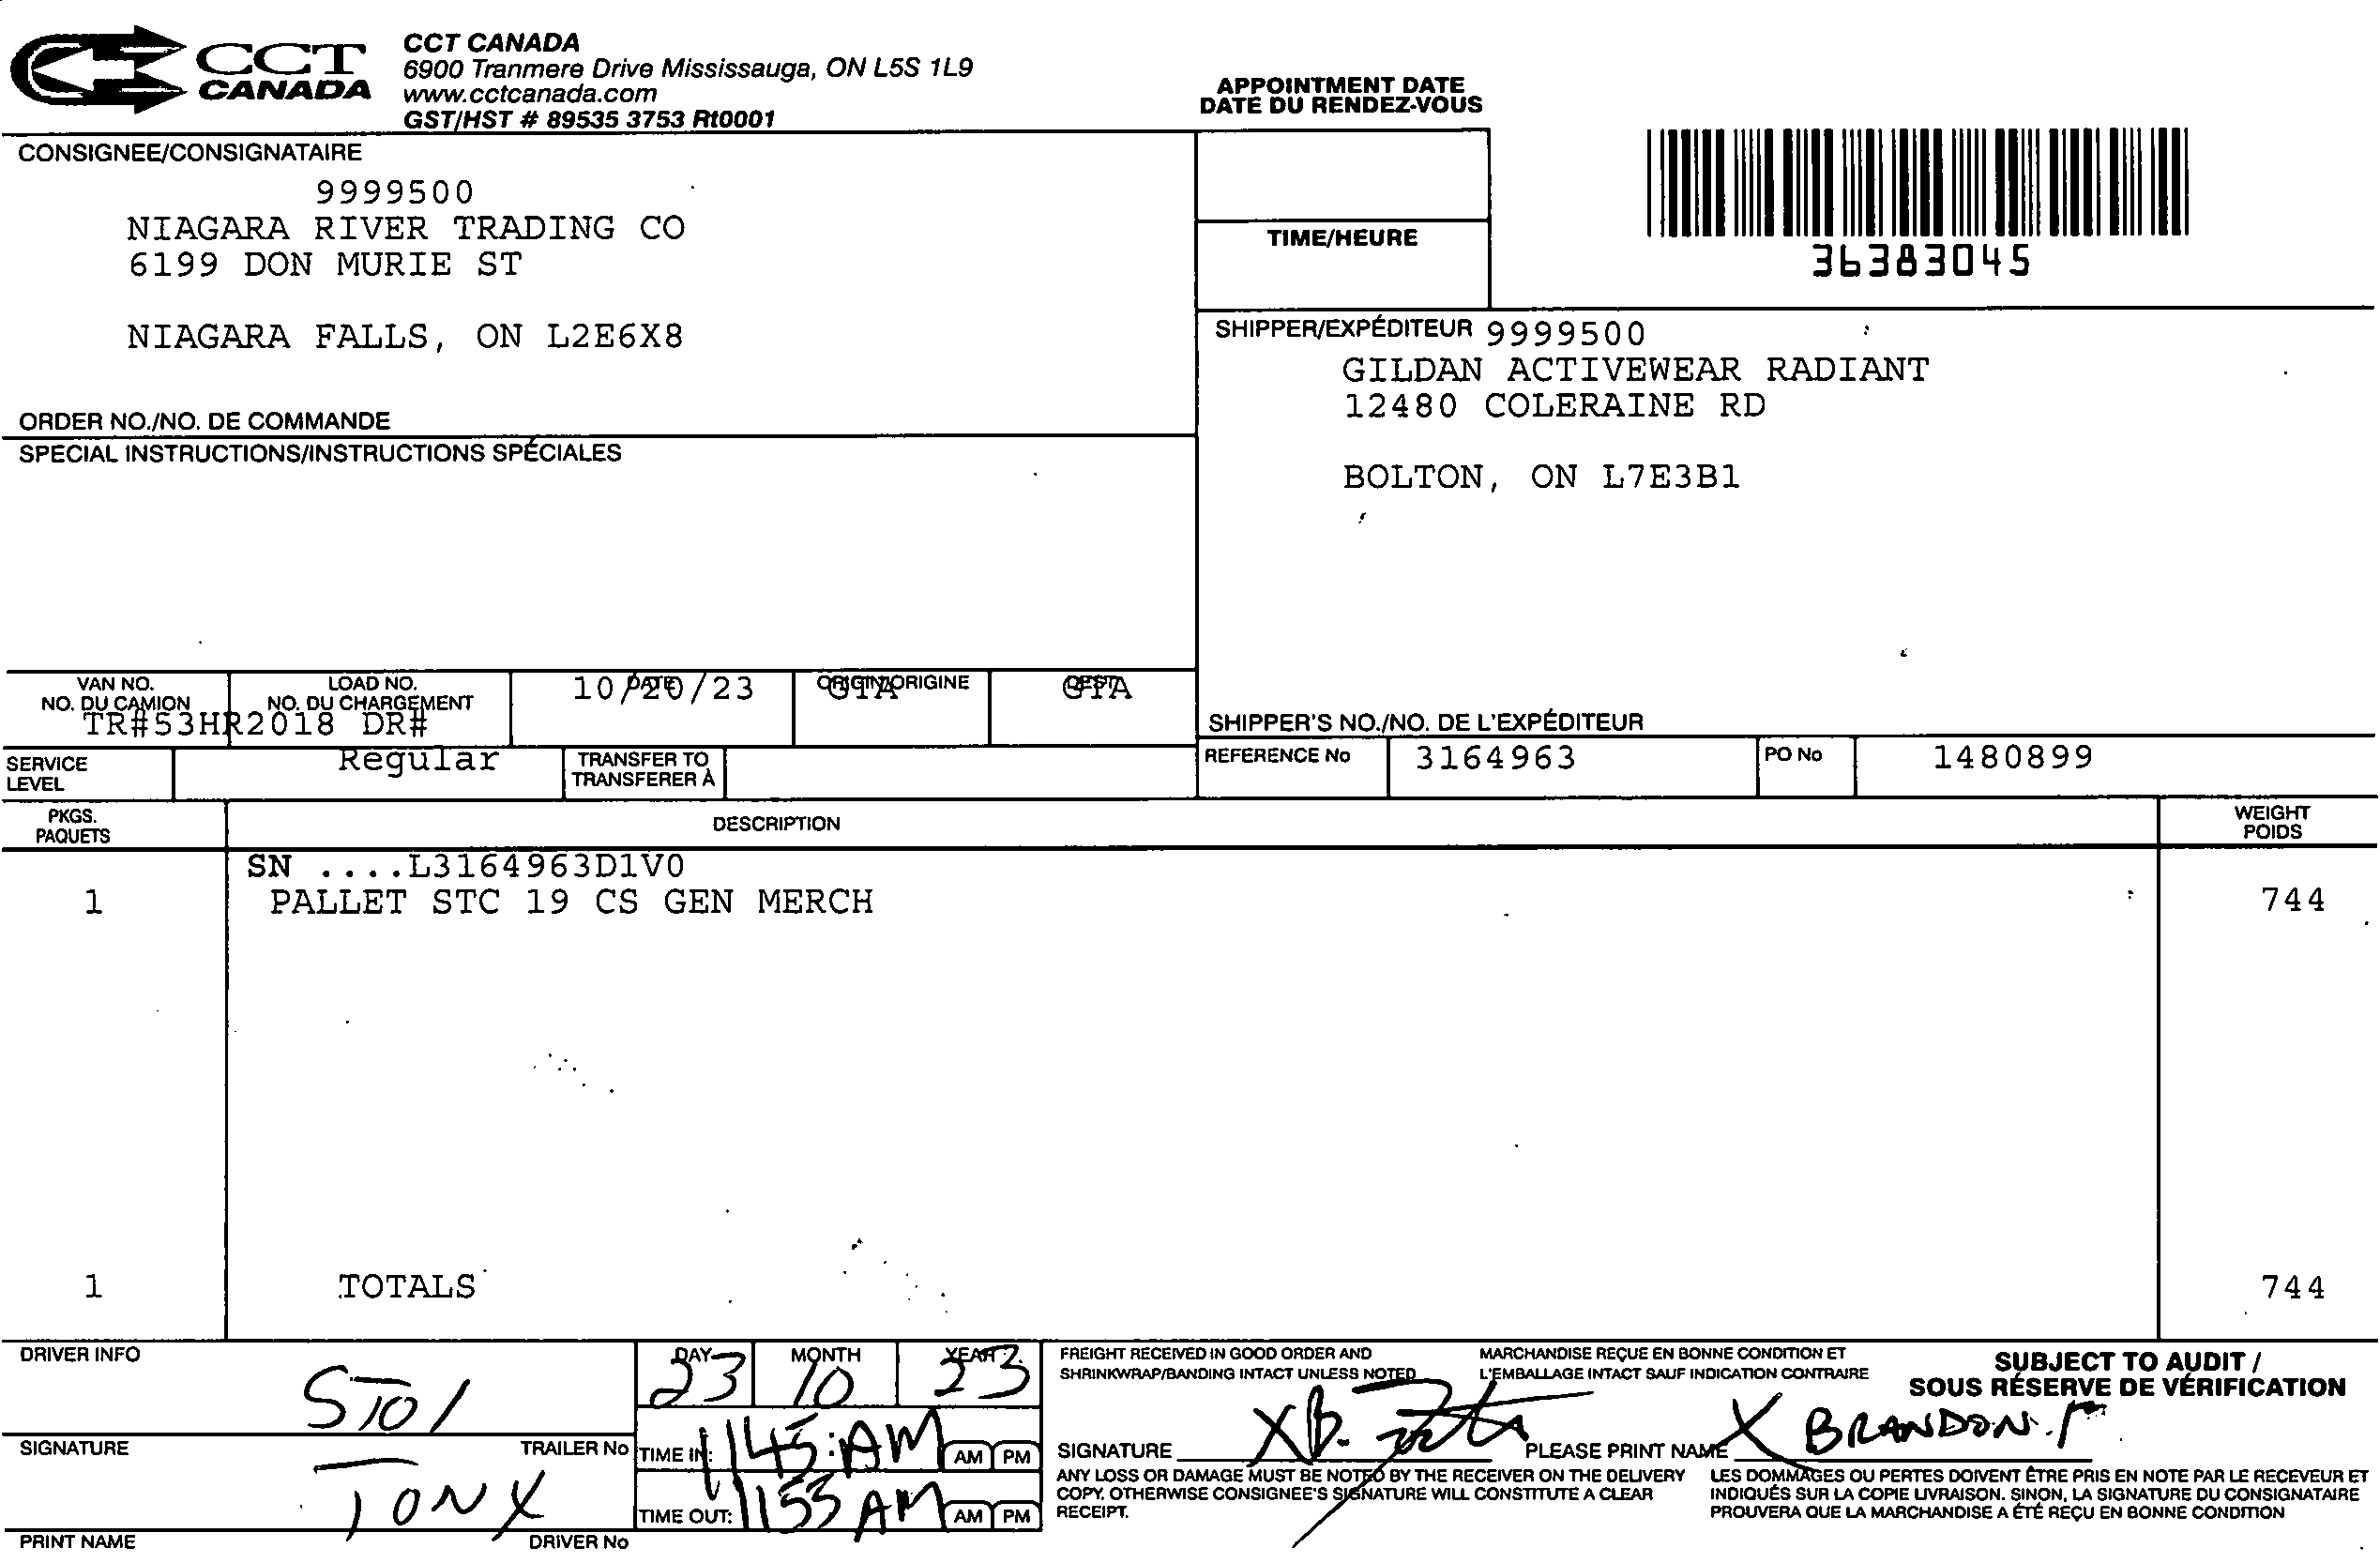 CCT
CANADA
CCT CANADA
6900 Tranmere Drive Mississauga, ON L5S 1L9
www.cctcanada.com
GST/HST # 89535 3753 Rt0001
APPOINTMENT DATE
DATE DU RENDEZ-VOUS
TIME/HEURE
36383045
CONSIGNEE/CONSIGNATAIRE
9999500
NIAGARA RIVER TRADING CO
6199 DON MURIE ST
NIAGARA FALLS, ON L2E6X8
ORDER NO./NO. DE COMMANDE
SPECIAL INSTRUCTIONS/INSTRUCTIONS SPÉCIALES
SHIPPER/EXPÉDITEUR 9999500
GILDAN ACTIVEWEAR RADIANT
12480 COLERAINE RD
BOLTON, ON L7E3B1
VAN NO.
NO. DU CAMION
LOAD NO.
NO. DU CHARGEMENT
TR#53HR2018 DR#
DATE
10/20/23
ORIGIN/ORIGINE
GTA
DEST.
GTA
SHIPPER'S NO./NO. DE L'EXPÉDITEUR
SERVICE
LEVEL
Regular
TRANSFER TO
TRANSFERER À
REFERENCE No 3164963
PO No 1480899
PKGS.
PAQUETS
DESCRIPTION
WEIGHT
POIDS
SN ....L3164963D1V0
1 PALLET STC 19 CS GEN MERCH 744
1 TOTALS 744
DRIVER INFO
SIGNATURE
TRAILER No
TONY
PRINT NAME
DRIVER No
DAY MONTH YEAR
23 10 23
TIME IN: 1145:AM AM PM
TIME OUT: 1155 AM AM PM
FREIGHT RECEIVED IN GOOD ORDER AND
SHRINKWRAP/BANDING INTACT UNLESS NOTED
MARCHANDISE REÇUE EN BONNE CONDITION ET
L'EMBALLAGE INTACT SAUF INDICATION CONTRAIRE
SUBJECT TO AUDIT /
SOUS RÉSERVE DE VÉRIFICATION
SIGNATURE X B.
PLEASE PRINT NAME X BRANDON.F
ANY LOSS OR DAMAGE MUST BE NOTED BY THE RECEIVER ON THE DELIVERY
COPY. OTHERWISE CONSIGNEE'S SIGNATURE WILL CONSTITUTE A CLEAR
RECEIPT.
LES DOMMAGES OU PERTES DOIVENT ÊTRE PRIS EN NOTE PAR LE RECEVEUR ET
INDIQUÉS SUR LA COPIE LIVRAISON. SINON, LA SIGNATURE DU CONSIGNATAIRE
PROUVERA QUE LA MARCHANDISE A ÉTÉ REÇU EN BONNE CONDITION